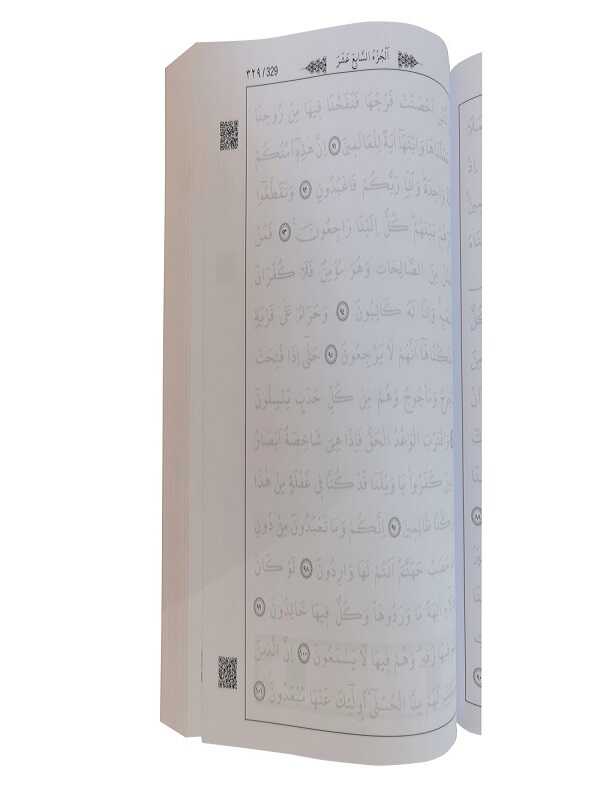 ٣٢٩ / 329
اَلْجُزْءُ السَّابِعَ عَشَرَ
اَحْصَنَتْ فَرْجَهَا فَنَفَخْنَا فِيهَا مِنْ رُوحِنَا
وَابْنَهَٓا اٰيَةً لِلْعَالَمِينَ ٩١ اِنَّ هٰذِهِٓ اُمَّتُكُمْ
وَاحِدَةً وَاَنَا۬ رَبُّكُمْ فَاعْبُدُونِ ٩٢ وَتَقَطَّعُٓوا
بَيْنَهُمْ كُلٌّ اِلَيْنَا رَاجِعُونَ ٩٣ فَمَنْ
مِنَ الصَّالِحَاتِ وَهُوَ مُؤْمِنٌ فَلَا كُفْرَانَ
وَاِنَّا لَهُ كَاتِبُونَ ٩٤ وَحَرَامٌ عَلٰى قَرْيَةٍ
اَنَّهُمْ لَا يَرْجِعُونَ ٩٥ حَتّٰٓى اِذَا فُتِحَتْ
وَمَأْجُوجُ وَهُمْ مِنْ كُلِّ حَدَبٍ يَنْسِلُونَ
وَاقْتَرَبَ الْوَعْدُ الْحَقُّ فَاِذَا هِيَ شَاخِصَةٌ اَبْصَارُ
كَفَرُوا يَا وَيْلَنَا قَدْ كُنَّا فِي غَفْلَةٍ مِنْ هٰذَا
كُنَّا ظَالِمِينَ ٩٧ اِنَّكُمْ وَمَا تَعْبُدُونَ مِنْ دُونِ
حَصَبُ جَهَنَّمَ اَنْتُمْ لَهَا وَارِدُونَ ٩٨ لَوْ كَانَ
اٰلِهَةً مَا وَرَدُوهَا وَكُلٌّ فِيهَا خَالِدُونَ ٩٩
فِيهَا زَفِيرٌ وَهُمْ فِيهَا لَا يَسْمَعُونَ ١٠٠ اِنَّ الَّذِينَ
لَهُمْ مِنَّا الْحُسْنٰٓى اُو۬لٰٓئِكَ عَنْهَا مُبْعَدُونَ ١٠١